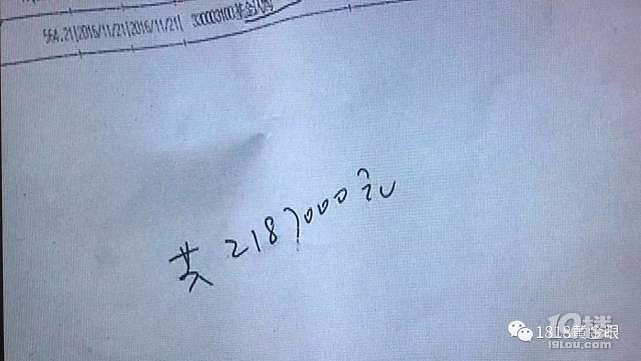 564.21|2016/11/21|2016/11/21| 330003100基金代购
共2187000元
1818黄金眼
19楼
19lou.com